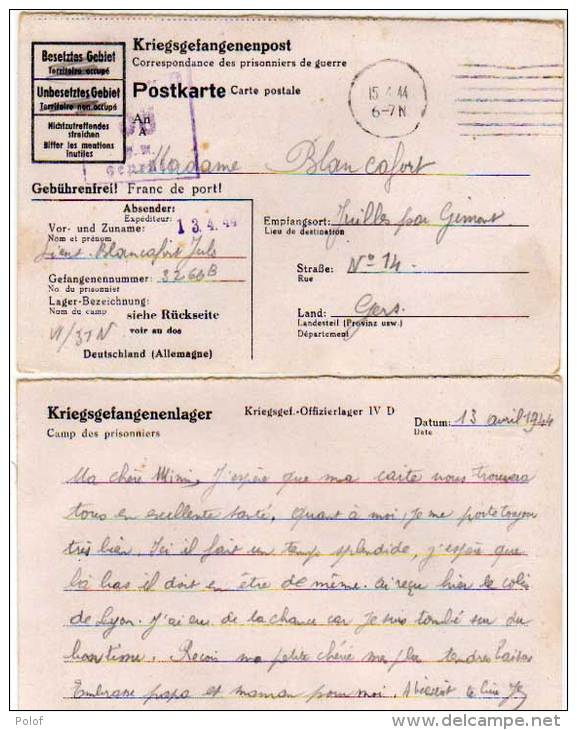 Besetztes Gebiet
Territoire occupé
Unbesetztes Gebiet
Territoire non occupé
Nichtzutreffendes
streichen
Biffer les mentions
inutiles
Kriegsgefangenenpost
Correspondance des prisonniers de guerre
Postkarte Carte postale
15.4.44
6-7N
An
A
Madame Blancafort
Gebührenfrei! Franc de port!
Absender:
Expéditeur:
13.4.44
Vor- und Zuname:
Nom et prénom
Lieut. Blancafort Jules
Gefangenennummer: 3260B
No. du prisonnier
Lager-Bezeichnung:
Nom du camp
siehe Rückseite
voir au dos
Deutschland (Allemagne)
Empfangsort: par Gimont
Lieu de destination
Straße: No 14.
Rue
Land: Gers.
Landesteil (Provinz usw.)
Département
Kriegsgefangenenlager
Camp des prisonniers
Kriegsgef.-Offizierlager IV D
Datum: 13 avril 1944
Date
Ma chère Mimi, J'espère que ma carte vous trouvera
tous en excellente santé, quant à moi, je me porte toujours
très bien. Ici il fait un temps splendide, j'espère que
là bas il doit en être de même. ai reçu hier le colis
de Lyon. J'ai eu de la chance car je suis tombé sur du
. Reçois ma petite chérie mes plus tendres baisers
Embrasse papa et maman pour moi. A bientôt
Polof
delcampe.net